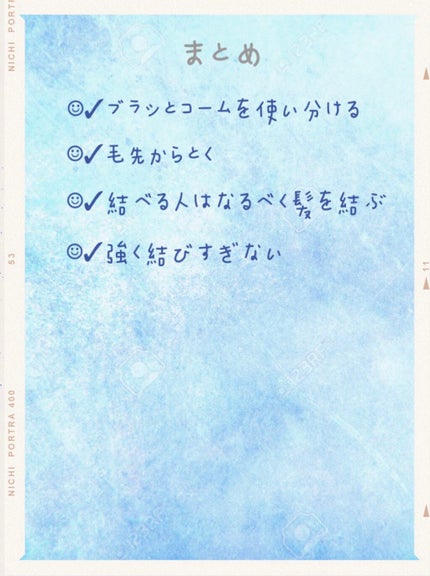 まとめ
☺✓ブラシとコームを使い分ける
☺✓毛先からとく
☺✓結べる人はなるべく髪を結ぶ
☺✓強く結びすぎない
NICHI PORTR
53
NICHI PORTRA 400
11